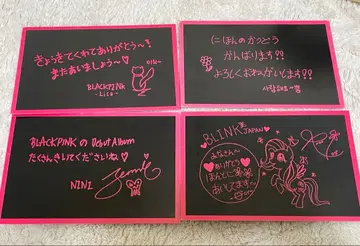 きょうきてくれてありがとう〜!
またあいましょう〜♡
BLACKPINK
-Lisa-
にほんのかつどう
がんばります!!
よろしくおねがいします!!
사랑해요
BLACKPINKの Debut Album
たくさんきいてくださいね♡
NINI
Jennie
BLINK
JAPAN
みなさん〜
ありがとう
ほんとに
あいしてます〜